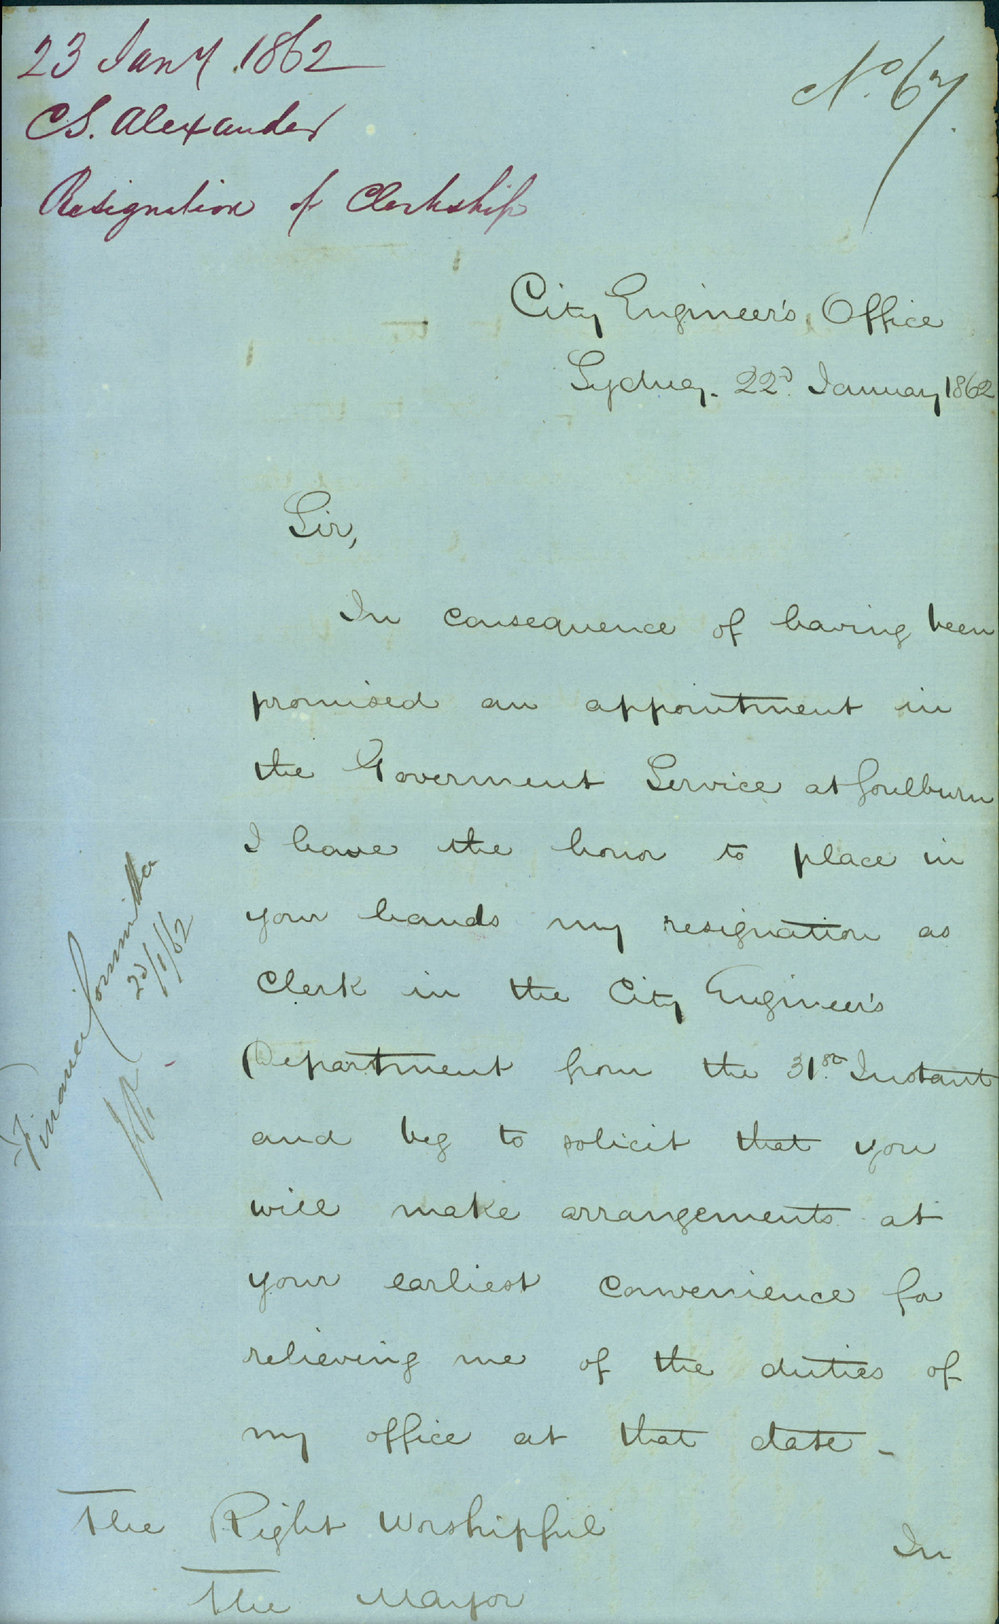 23 Jany. 1862
No. 67.
C.S. Alexander
Resignation of Clerkship
City Engineer's Office
Sydney. 22d. January 1862
Sir,
In consequence of having been
promised an appointment in
the Goverment Service at Goulburn
I have the honor to place in
your hands my resignation as
Clerk in the City Engineer's
Department from the 31st. Instant
and beg to solicit that you
will make arrangements at
your earliest convenience for
relieving me of the duties of
my office at that date -
The Right Worshipful
The Mayor
In
Finance Committee
/1/62